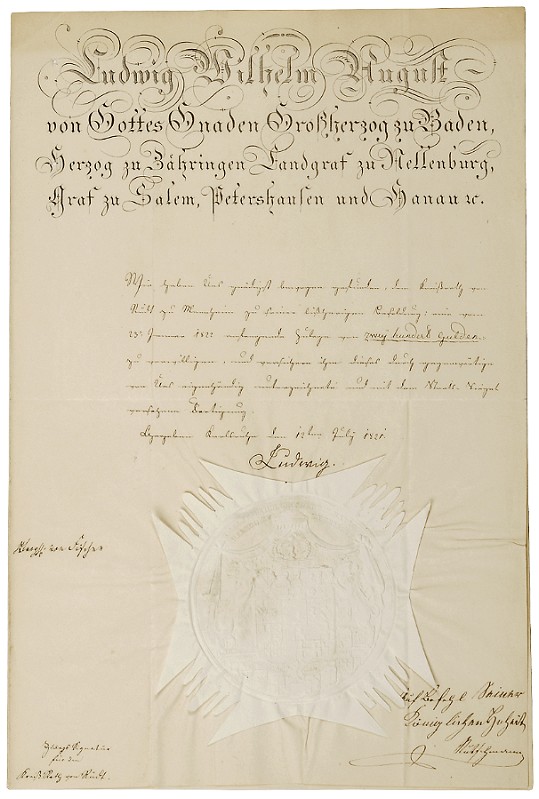 Ludwig Wilhelm August
von Gottes Gnaden Großherzog zu Baden,
Herzog zu Zähringen Landgraf zu Nellenburg,
Graf zu Salem, Petershausen und Hanau ꝛc.
Wir haben Uns gnädigst bewogen gefunden, dem Kreißrath von
Rüdt zu Mannheim zu seiner bißherigen Besoldung, eine vom
23n Januar 1822 anfangende Zulage von zwey hundert Gulden
zu bewilligen, und versichern ihm dieses durch gegenwärtige
von Uns eigenhändig unterzeichnete und mit dem Staats-Siegel
versehene Fertigung.
Gegeben Karlsruhe den 12ten July 1821.
Ludwig.
von Fischer
Auf Befehl Seiner
Königlichen Hoheit
Zulags Signatur
für den
Kreiß Rath von Rüdt.